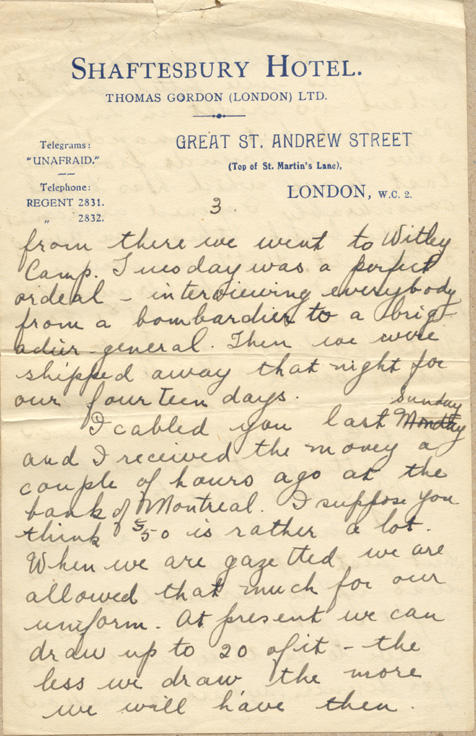 SHAFTESBURY HOTEL.
THOMAS GORDON (LONDON) LTD.
GREAT ST. ANDREW STREET
(Top of St. Martin's Lane),
LONDON, W.C. 2.
Telegrams:
"UNAFRAID."
Telephone:
REGENT 2831.
„ 2832.
3.
from there we went to Witley
Camp. Tuesday was a perfect
ordeal - interviewing everybody
from a bombardier to a brig-
adier-general. Then we were
shipped away that night for
our fourteen days.
Sunday
I cabled you last Monday
and I received the money a
couple of hours ago at the
bank of Montreal. I suppose you
think £50 is rather a lot.
When we are gazetted we are
allowed that much for our
uniform. At present we can
draw up to 20 of it - the
less we draw the more
we will have then.